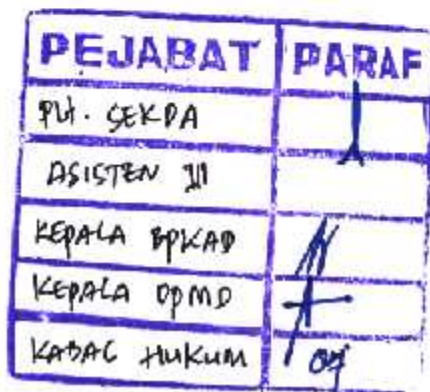 PEJABAT PARAF
Plt. SEKDA
ASISTEN III
KEPALA BPKAD
KEPALA DPMD
KABAG HUKUM